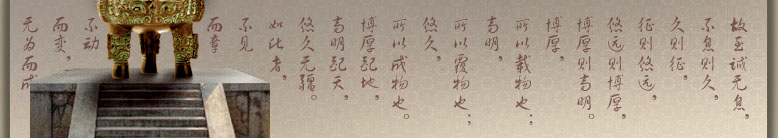 故至诚无息，
不息则久，
久则征，
征则悠远，
悠远则博厚，
博厚则高明。
博厚，
所以载物也；
高明，
所以覆物也；
悠久，
所以成物也。
博厚配地，
高明配天，
悠久无疆。
如此者，
不见
而章
不动
而变，
无为而成